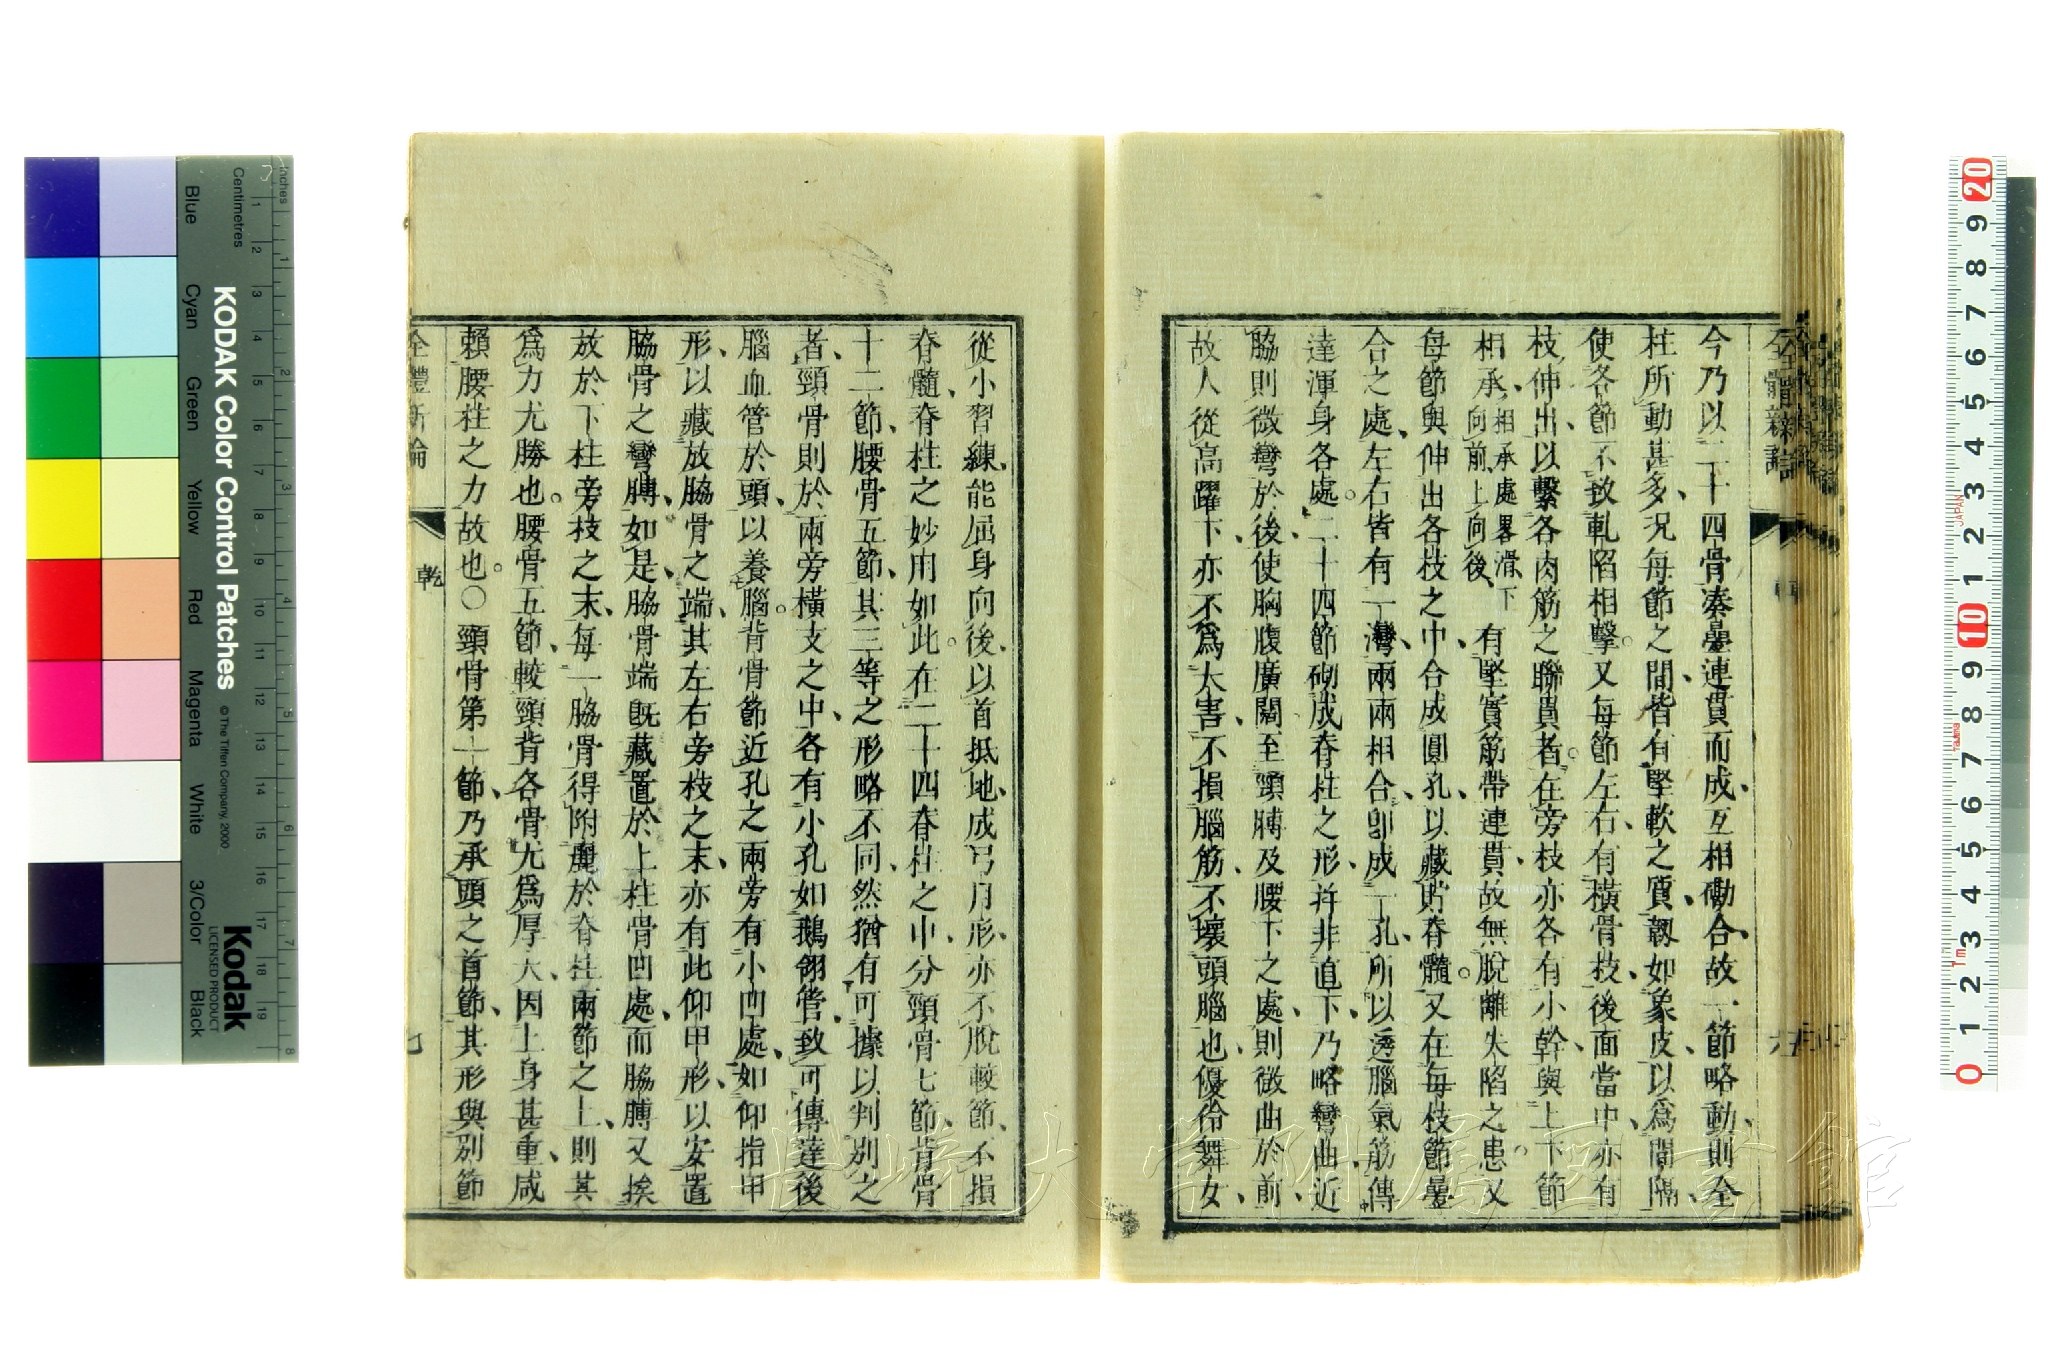 今乃以二十四骨凑疊連貫而成、互相働合、故一節略動、則全
柱所動甚多、况每節之間、皆有堅軟之質、韌如象皮、以爲間隔、
使各節不致軋陷相擊。又每節左右、有橫骨枝、後面當中、亦有
枝伸出、以繫各肉筋之聯貫者。在旁枝亦各有小幹、與上下節
相承、相承處畧滑、下向前、上向後、有堅實筋帶連貫、故無脫離失陷之患、又
每節與伸出各枝之中、合成圓孔、以藏貯脊髓。又在每枝節疊
合之處、左右皆有一灣、兩兩相合、卽成一孔、所以透腦氣筋、傳
達渾身各處。二十四節砌成脊柱之形、幷非直下、乃略彎曲、近
脇則微彎於後、使胸腹廣闊、至頸膊及腰下之處、則微曲於前、
故人從高躍下、亦不爲大害、不損腦筋、不壞頭腦也、優伶舞女、
從小習練、能屈身向後、以首抵地、成弓月形、亦不脫骹節、不損
脊髓、脊柱之妙用如此。在二十四脊柱之中、分頸骨七節、背骨
十二節、腰骨五節、其三等之形略不同、然猶有可據以判別之
者、頸骨則於兩旁橫支之中、各有小孔如鵝翎管、致可傳達後
腦血管於頭、以養腦。背骨節近孔之兩旁、有小凹處、如仰指甲
形、以藏放脇骨之端、其左右旁枝之末、亦有此仰甲形、以安置
脇骨之彎膊、如是、脇骨端既藏置於上柱骨凹處、而脇膊又挨
放於下柱旁枝之末、每一脇骨得附麗於脊柱兩節之上、則其
爲力尤勝也。腰骨五節、較頸背各骨尤爲厚大、因上身甚重、咸
賴腰柱之力故也。〇頸骨第一節、乃承頭之首節、其形與別節
全體新論
乾
KODAK Color Control Patches
© The Tiffen Company, 2000
Kodak
LICENSED PRODUCT
Inches
Centimetres
Blue
Cyan
Green
Yellow
Red
Magenta
White
3/Color
Black
JAPAN
20 9 8 7 6 5 4 3 2 1 10 9 8 7 6 5 4 3 2 1 0